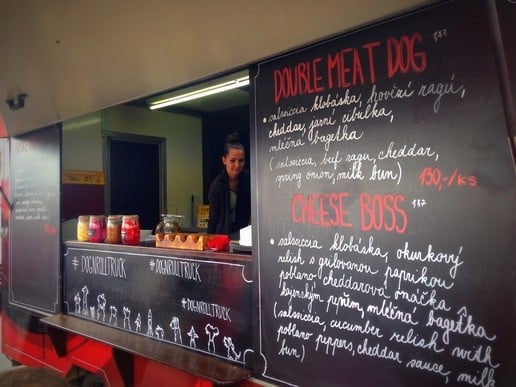 DOUBLE MEAT DOG 1,7
• salsiccia klobáska, hovězí ragú,
cheddar, jarní cibulka,
mléčná bagetka
(salsiccia, beef ragu, cheddar,
spring onion, milk bun)
130,-/KS
CHEESE BOSS 1,7
• salsiccia klobáska, okurkový
relish s grilovanou paprikou
poblano cheddarová omáčka s
kajenským pepřem, mléčná bagetka
(salsiccia, cucumber relish with
poblano peppers, cheddar sauce, milk
bun)
#DOGNROLLTRUCK
#DOGNROLLTRUCK
#DOGNROLLTRUCK